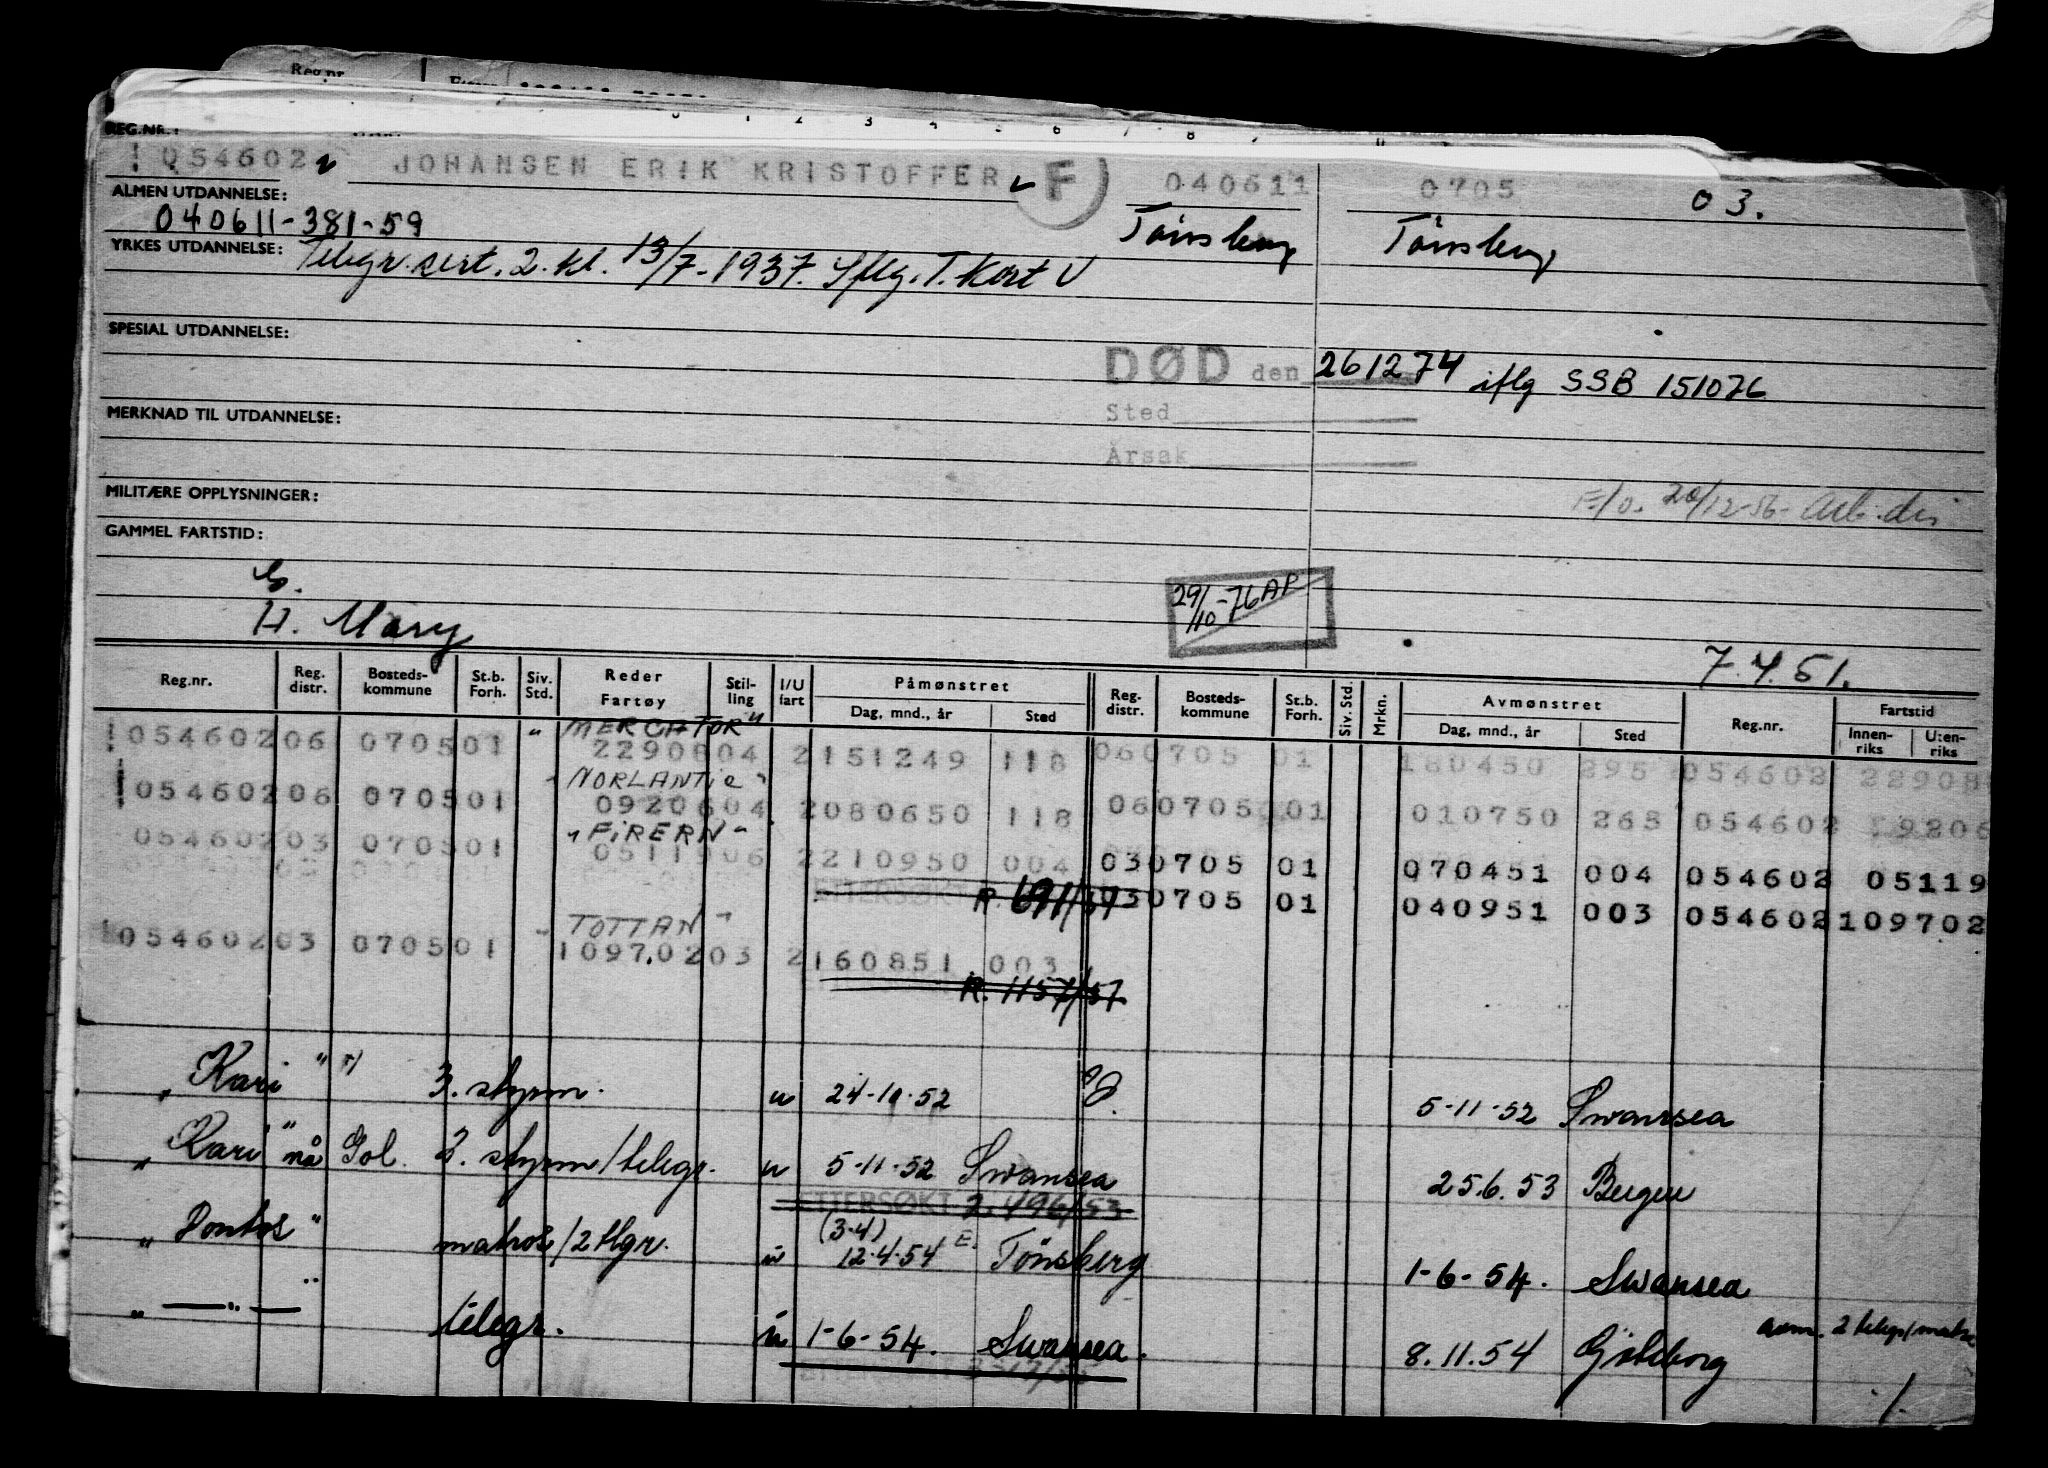 Reg.nr.
1 2 3 4 5 6 7 8 9
REG.NR.:
! 054602 JOHANSEN ERIK KRISTOFFER F 040611 0705 03.
ALMEN UTDANNELSE:
040611-381-59 Tönsberg Tönsberg
YRKES UTDANNELSE: Telegr.sert. 2. kl. 13/7-1937. Iflg. T. Kort V
SPESIAL UTDANNELSE:
DØD den 261274 iflg SSB 151076
MERKNAD TIL UTDANNELSE: Sted
Årsak
MILITÆRE OPPLYSNINGER:
F/o. 20/12-56-
GAMMEL FARTSTID:
29/10-76 AP
H. Mary
7.4.51.
Reg.nr. Reg. distr. Bosteds-kommune St.b. Forh. Siv. Std. Reder Fartøy Stil-ling I/U fart Påmønstret Dag, mnd., år Sted Reg. distr. Bosteds-kommune St.b. Forh. Siv. Std. Mrkn. Avmønstret Dag, mnd., år Sted Reg.nr. Fartstid Innen-riks Uten-riks
"MERCATOR"
! 054602 06 0705 01 2290804 2 151249 118 06 0705 01 180450 295 054602 22908
"NORLANTIC"
! 054602 06 0705 01 0920604 2 080650 118 06 0705 01 010750 265 054602 9206
"FIRERN"
054602 03 0705 01 0511906 2 210950 004 03 0705 01 070451 004 054602 05119
ETTERSØKT R. 691/57 03 0705 01 040951 003 054602 109702
"TOTTAN"
054602 03 0705 01 1097.0203 2 160851 003
R. 1157/57
"Kari" 3. styrm. u 24-10-52 5-11-52 Swansea
"Kari" nå Gol. 2. styrm/telegr. u 5-11-52 Swansea 25.6.53 Bergen
ETTERSØKT 2.496/53
(3-4)
"Pontos" matros/2 tlgr. u 12.4.54 E. Tönsberg 1-6-54. Swansea
" — " — telegr. u 1-6-54. Swansea. 8.11.54 Göteborg